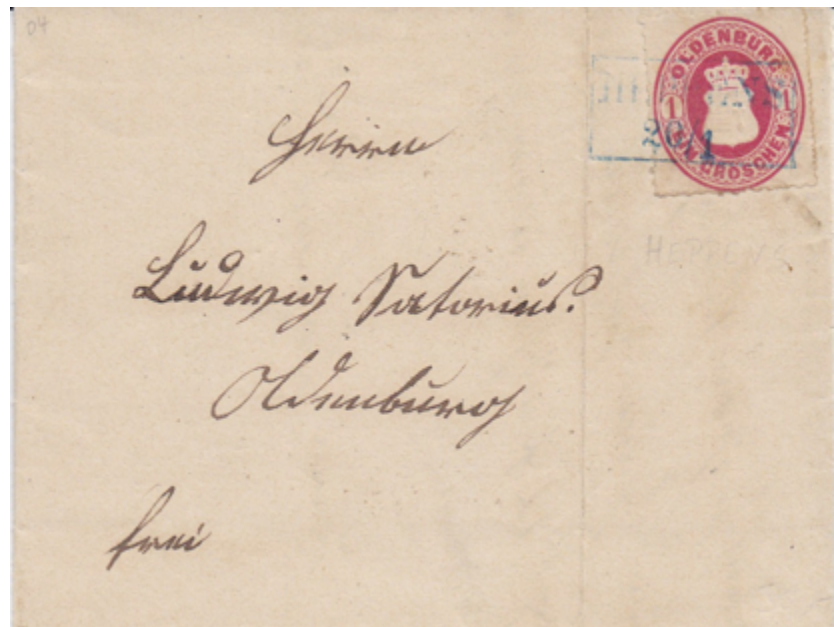 04
OLDENBURG
1 1
EIN GROSCHEN
20/1
HEPPENS
Herrn
Ludwig Satorius.
Oldenburg
frei